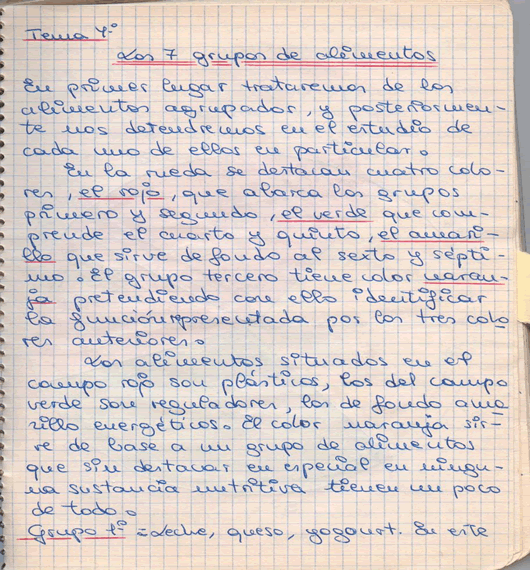 Tema 4º
Los 7 grupos de alimentos
En primer lugar trataremos de los
alimentos agrupados, y posteriormen-
te nos detendremos en el estudio de
cada uno de ellos en particular.
En la rueda se destacan cuatro colo-
res, el rojo, que abarca los grupos
primero y segundo, el verde que com-
prende el cuarto y quinto, el amari-
llo que sirve de fondo al sexto y sépti-
mo. El grupo tercero tiene color naran-
ja pretendiendo con ello identificar
la función representada por los tres colo-
res anteriores.
Los alimentos situados en el
campo rojo son plásticos, los del campo
verde son reguladores, los de fondo ama
rillo energéticos. El color naranja sir-
ve de base a un grupo de alimentos
que sin destacar en especial en ningu-
na sustancia nutritiva tienen un poco
de todo.
Grupo 1º = Leche, queso, yogourt. En este